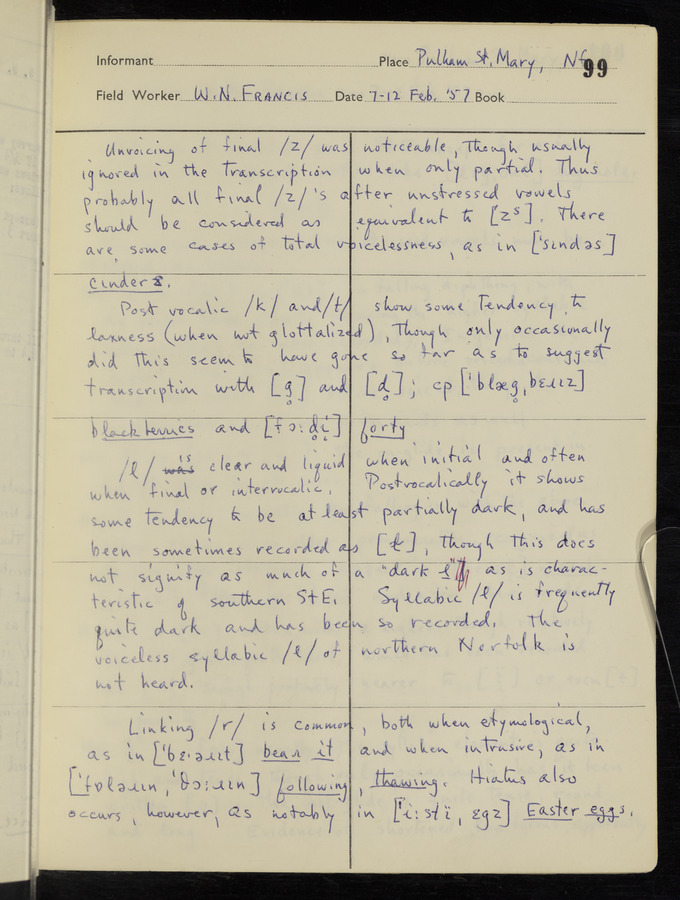 Informant Place Pulham St. Mary, Nf. 99
Field Worker W.N. FRANCIS Date 7-12 Feb. '57 Book
Unvoicing of final /z/ was noticeable, though usually
ignored in the transcription when only partial. Thus
probably all final /z/'s after unstressed vowels
should be considered as equivalent to [zˢ]. There
are some cases of total voicelessness, as in ['sɪndəs]
cinders.
Post vocalic /k/ and /t/ show some tendency to
laxness (when not glottalized), though only occasionally
did this seem to have gone so far as to suggest
transcription with [g̥] and [d̥]; cp ['blæg̥ˌbɛɹɪz]
blackberries and [fɔ:d̥i̞] forty
/l/ was is clear and liquid when initial and often
when final or intervocalic. Postvocalically it shows
some tendency to be at least partially dark, and has
been sometimes recorded as [ɫ], though this does
not signify as much of a "dark l" as is charac-
teristic of southern StE. Syllabic /l/ is frequently
quite dark and has been so recorded. The
voiceless syllabic /l/ of northern Norfolk is
not heard.
Linking /r/ is common, both when etymological,
as in ['bɛ·əɹɪt] bear it and when intrusive, as in
['fɒləɹɪn, 'θɔ:ɹɪn] following, thawing. Hiatus also
occurs, however, as notably in ['i:stï, ɛgz] Easter eggs.